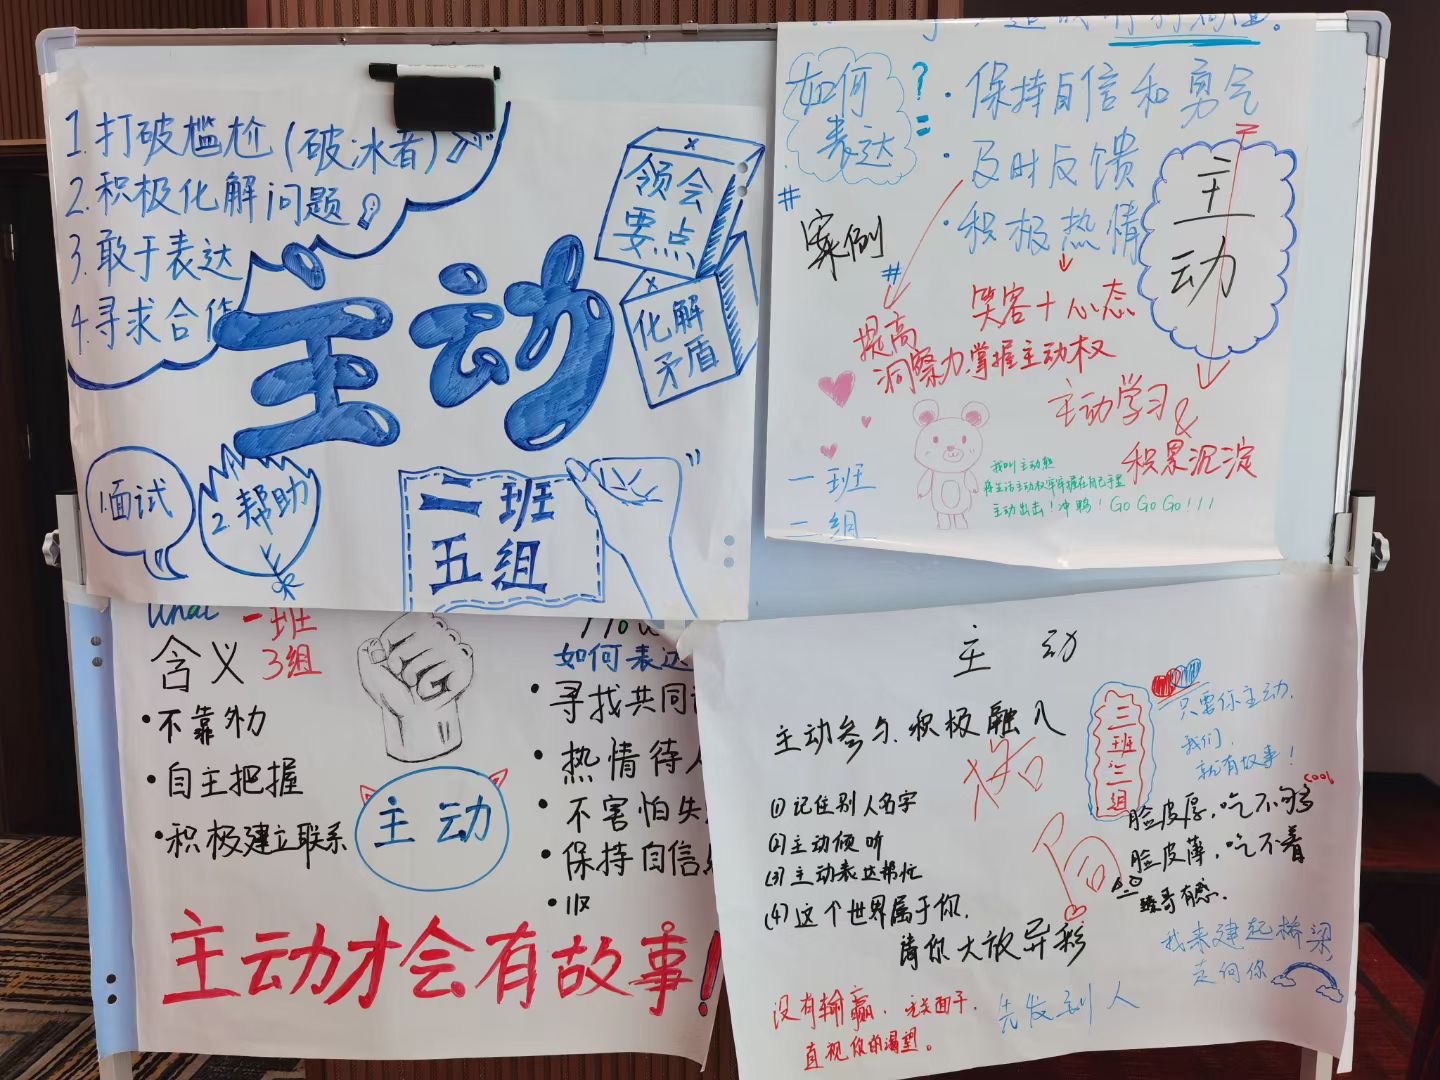 1.打破尴尬（破冰者）
2.积极化解问题
3.敢于表达
4.寻求合作
主动
领会
要点
化解
矛盾
1.面试
2.帮助
二班
五组
如何
表达
?
=
·保持自信和勇气
·及时反馈
·积极热情
主
动
#
案例
#
笑容+心态
提高
洞察力.掌握主动权
主动学习
&
积累沉淀
我叫主动熊
将生活主动权牢牢握在自己手里
主动出击！冲鸭！GoGoGo!!!
一班
二组
What
一班
3组
含义
·不靠外力
·自主把握
·积极建立联系
主动
How
如何表达
·寻找共同
·热情待人
·不害怕失
·保持自信
主动才会有故事！
主动
主动参与.积极融入
(1)记住别人名字
(2)主动倾听
(3)主动表达帮忙
(4)这个世界属于你.
请你大放异彩
三
班
三
组
只要你主动.
我们,
就有故事！
cool
脸皮厚,吃不够
脸皮薄,吃不着
臻哥有感.
我来建起桥梁,
走向你
没有输赢.无关面子.
直视你的渴望。
先发别人